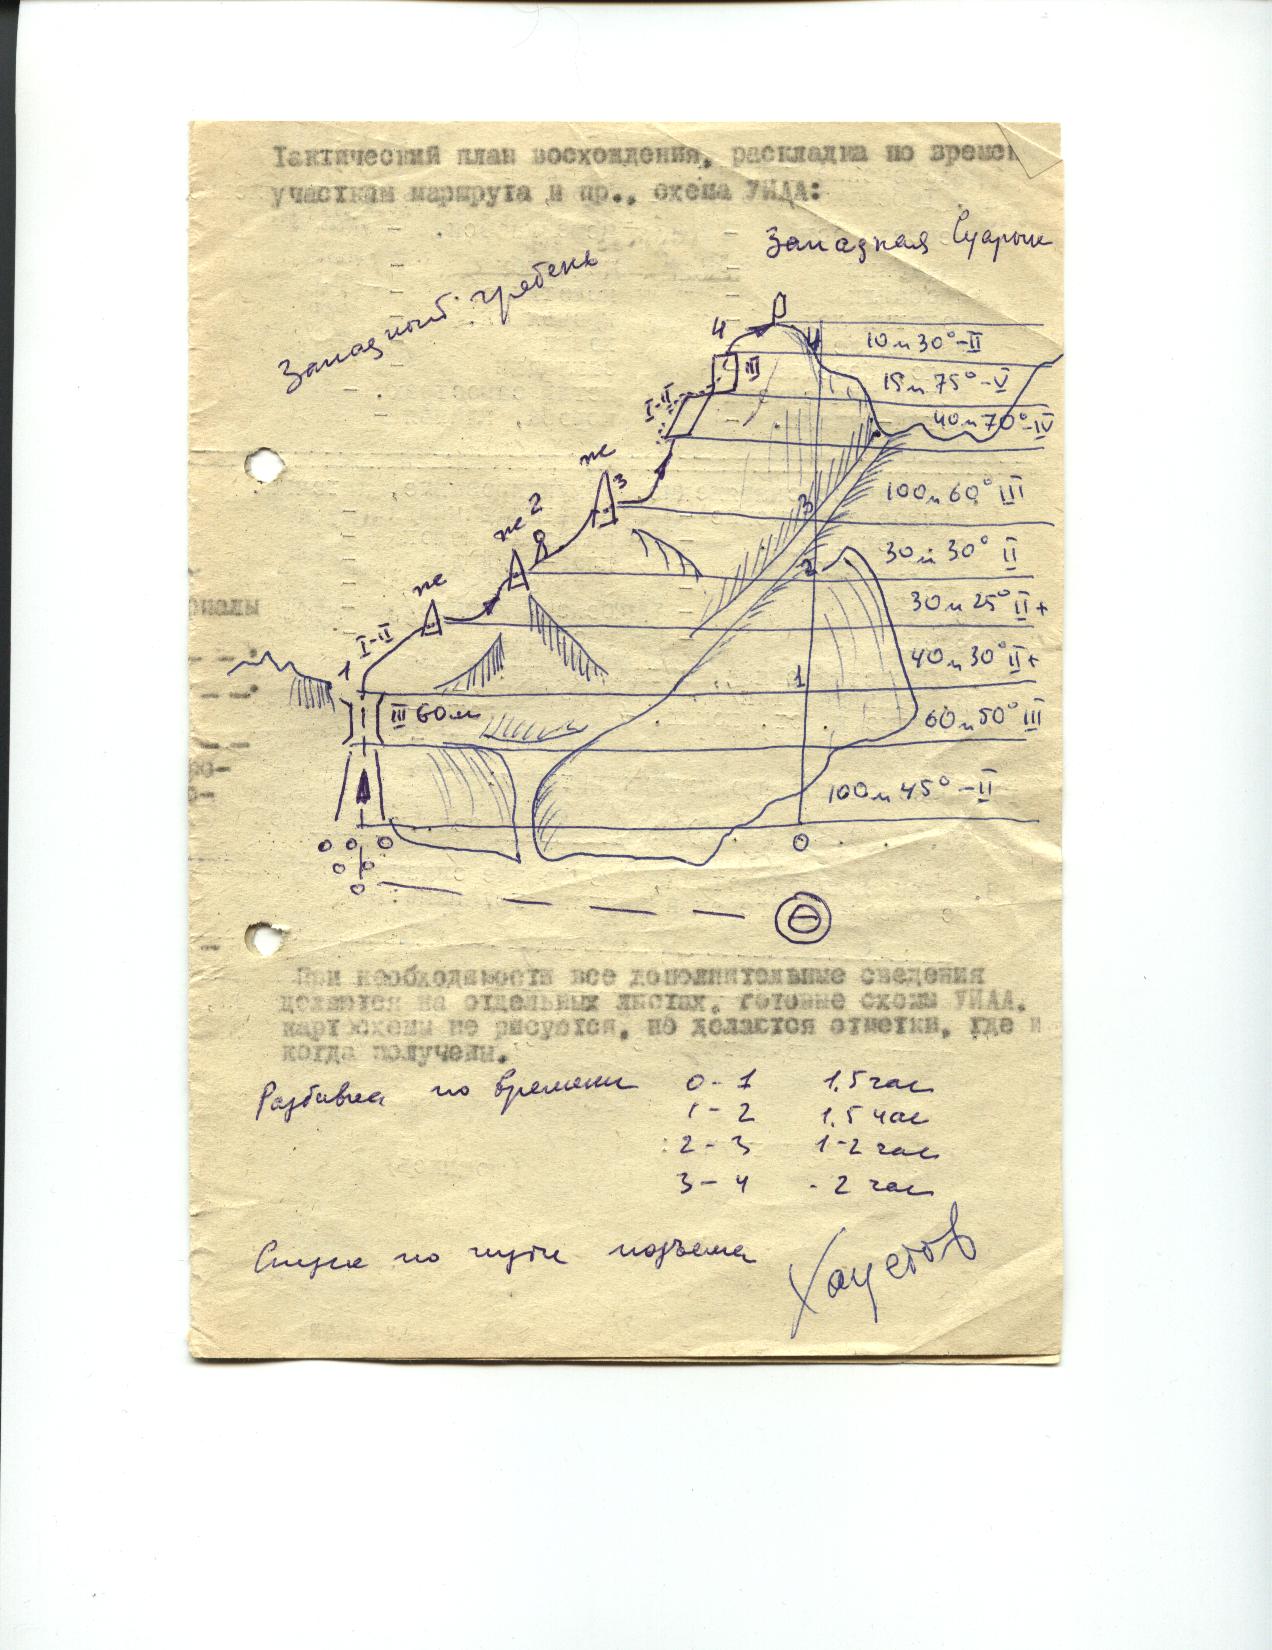 Тактический план восхождения, раскладка по времени
участкам маршрута и пр., схема УИАА:
Западная Суарык
Западный гребень
4
10м 30° - II
III
15м 75° - V
I-II
40м 70° - IV
же
3
100м 60° III
3
же 2
30м 30° II
2
же
30м 25° II+
I-II
1
40м 30° II+
1
III 60м
60м 50° III
100м 45° - II
0
При необходимости все дополнительные сведения
делаются на отдельных листах, готовые схемы УИАА,
картосхемы не рисуются, но делаются отметки, где и
когда получены.
Разбивка по времени 0 - 1 1,5 час
1 - 2 1,5 час
2 - 3 1-2 час
3 - 4 - 2 час
Спуск по пути подъема
Хацетов